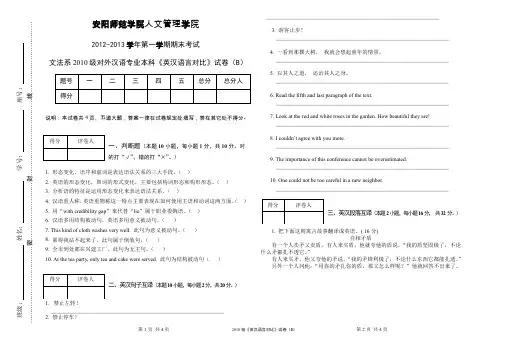 安阳师范学院人文管理学院
2012-2013学年第一学期期末考试
文法系2010级对外汉语专业本科《英汉语言对比》试卷（B）
题号 一 二 三 四 五 总分 总分人
得分
说明：本试卷共4页，五道大题，答案一律在试卷规定处填写，答在其它处不得分。
得分 评卷人
一、判断题（本题10小题，每小题1分，共10分。对的打“√”，错的打“×”。）
1. 形态变化、语序和虚词是表达语法关系的三大手段。（ ）
2. 英语的形态变化，即词的形式变化，主要包括构词形态和构形形态。（ ）
3. 分析语的特征是运用形态变化来表达语法关系。（ ）
4. 汉语重人称，英语重物称这一特点主要表现在如何使用主语和动词这两方面。（ ）
5. 用“with credibility gap”来代替“lie”属于职业委婉语。（ ）
6. 汉语多用结构被动句，英语多用意义被动句。（ ）
7. This kind of cloth washes very well. 此句为意义被动句。（ ）
8. 累得我站不起来了。此句属于倒装句。（ ）
9. 全市到处都在兴建工厂。此句为无主句。（ ）
10. At the tea party, only tea and cake were served. 此句为结构被动句（ ）
得分 评卷人
二、英汉句子互译（本题10小题，每小题2分，共20分。）
1. 禁止左转！
2. 禁止停车！
第1页 共4页
3. 游客止步！
4. 一看到那棵大树，我就会想起童年的情景。
5. 以其人之道，还治其人之身。
6. Read the fifth and last paragraph of the text.
7. Look at the red and white roses in the garden. How beautiful they are!
8. I couldn't agree with you more.
9. The importance of this conference cannot be overestimated.
10. One could not be too careful in a new neighbor.
得分 评卷人
三、英汉段落互译（本题2小题，每小题16分，共32分。）
1. 把下面这则寓言故事翻译成英语。（16分）
自相矛盾
有一个人卖矛又卖盾。有人来买盾，他就夸他的盾说：“我的盾坚固极了，不论什么矛都扎不透它。”
有人来买矛，他又夸他的矛说：“我的矛锋利极了，不论什么东西它都能扎透。”
另外一个人问他：“用你的矛扎你的盾，那又怎么样呢？”他就回答不出来了。
2010级《英汉语言对比》试卷（B） 第2页 共4页
班级：
姓名：
学号：
座号：